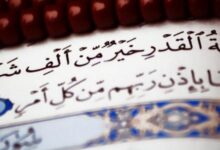 ةُ ٱلْقَدْرِ خَيْرٌ مِّنْ أَلْفِ شَ
بِإِذْنِ رَبِّهِم مِّن كُلِّ أَمْرٍ